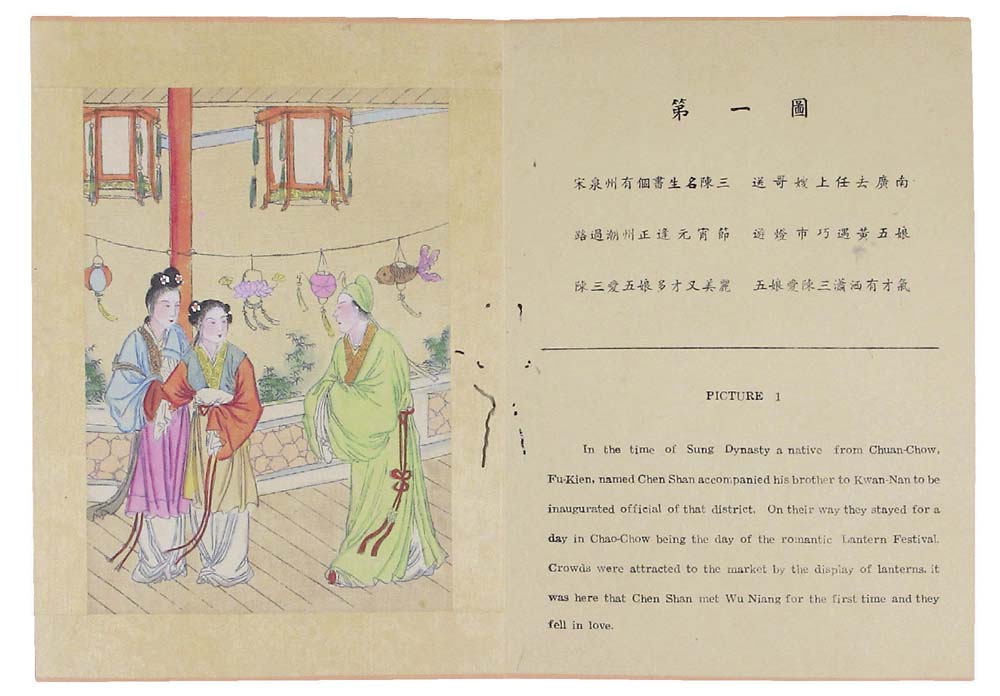 第一圖
宋泉州有個書生名陳三 送哥嫂上任去廣南
路過潮州正逢元宵節 遊燈市巧遇黃五娘
陳三愛五娘多才又美麗 五娘愛陳三瀟洒有才氣
PICTURE 1
In the time of Sung Dynasty a native from Chuan-Chow,
Fu-Kien, named Chen Shan accompanied his brother to Kwan-Nan to be
inaugurated official of that district. On their way they stayed for a
day in Chao-Chow being the day of the romantic Lantern Festival.
Crowds were attracted to the market by the display of lanterns. it
was here that Chen Shan met Wu Niang for the first time and they
fell in love.